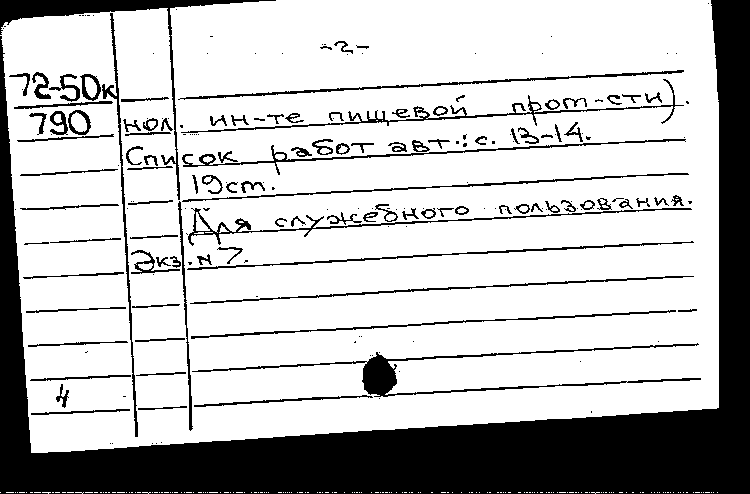 -2-
72-50к
790
нол. ин-те пищевой пром-сти).
Список работ авт.: с. 13-14.
19см.
Для служебного пользования.
Экз. № 7.
4